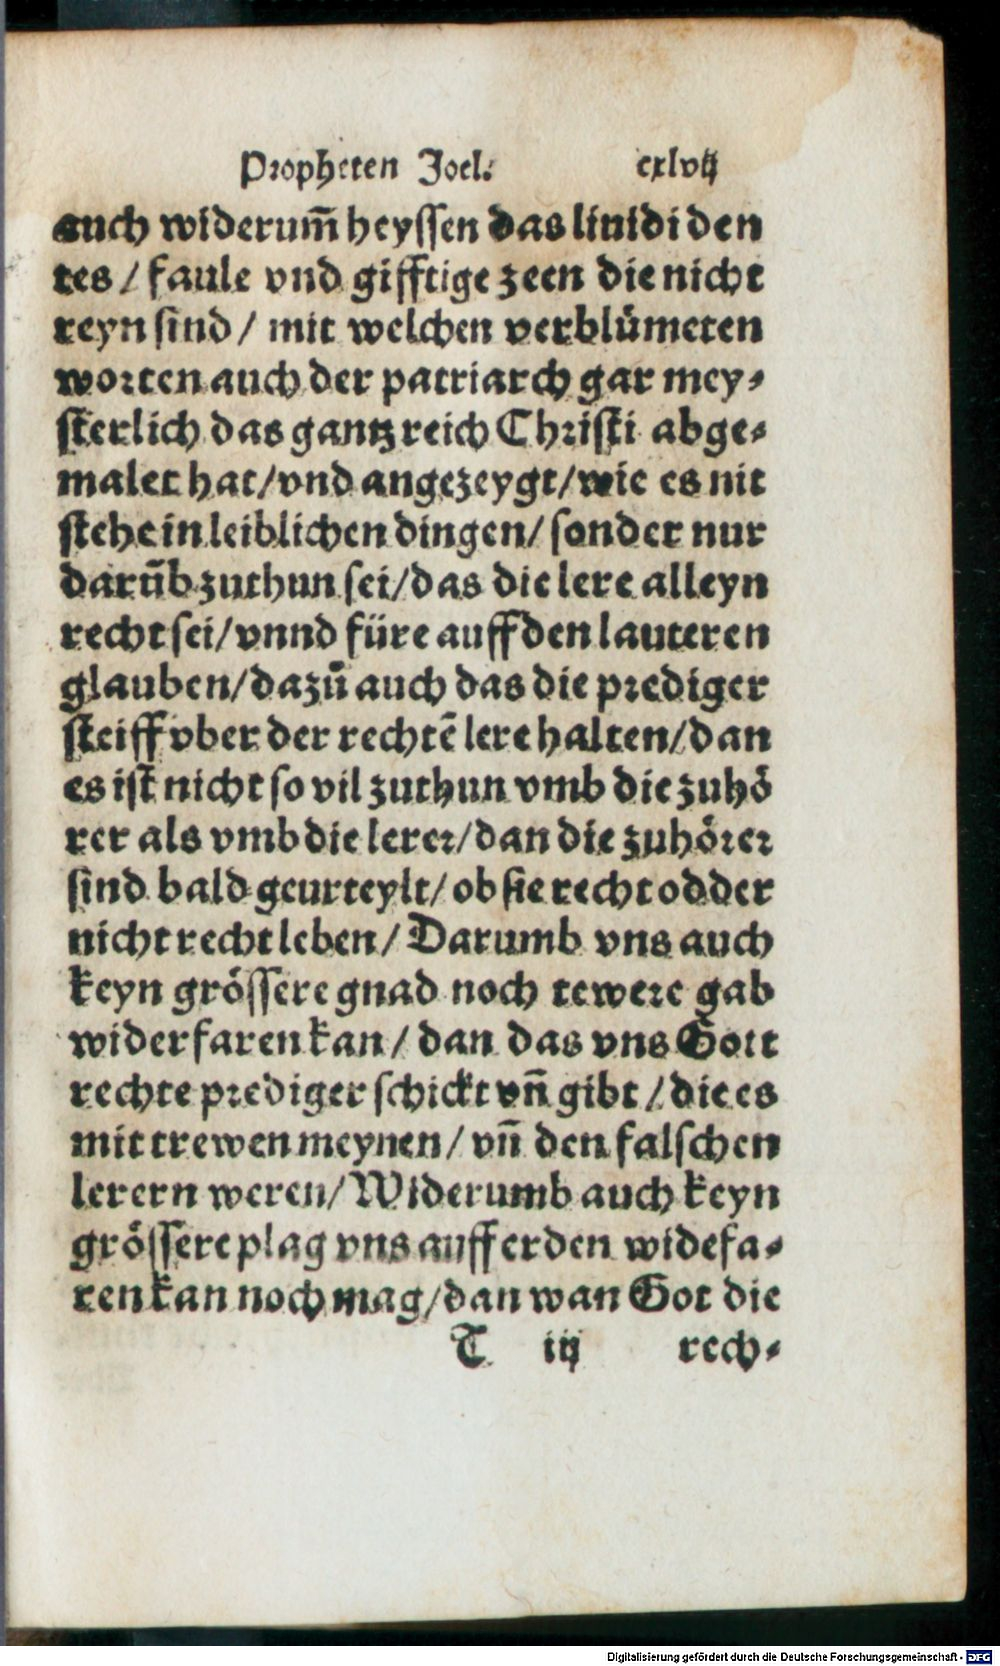 Propheten Joel. cxlvij
auch widerum̃ heyssen das liuidi den
tes / faule vnd gifftige zeen die nicht
reyn sind / mit welchen verblůmeten
worten auch der patriarch gar mey-
sterlich das gantz reich Christi abge-
malet hat/vnd angezeygt/wie es nit
stehe in leiblichen dingen/ sonder nur
darũb zuthun sei/das die lere alleyn
recht sei/vnnd füre auff den lauteren
glauben/dazů auch das die prediger
steiff vber der rechtẽ lere halten/dan
es ist nicht so vil zuthun vmb die zuhö
rer als vmb die lerer/dan die zuhörer
sind bald geurteylt/ ob sie recht odder
nicht recht leben/ Darumb vns auch
keyn grössere gnad noch tewere gab
widerfaren kan/ dan das vns Gott
rechte prediger schickt vñ gibt / die es
mit trewen meynen/ vñ den falschen
lerern weren/Widerumb auch keyn
grössere plag vns auff erden widefa-
ren kan noch mag/dan wan Got die
T iij rech-
Digitalisierung gefördert durch die Deutsche Forschungsgemeinschaft - DFG